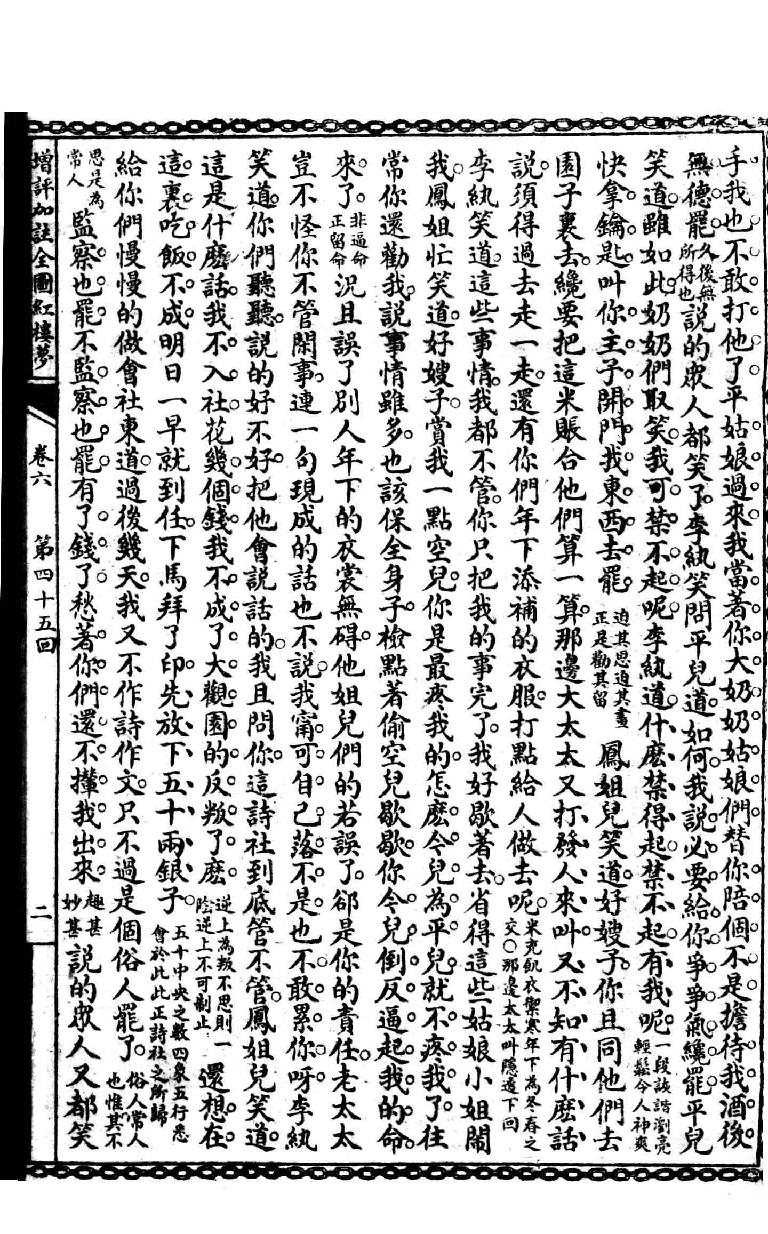 手我也不敢打他了平姑娘過來我當著你大奶奶姑娘們替你陪個不是擔待我酒後
無德罷久後無所得也說的眾人都笑了李紈笑問平兒道如何我說必要給你爭爭氣纔罷平兒
笑道雖如此奶奶們取笑我可禁不起呢李紈道什麽禁得起禁不起有我呢一段詼諧瀏亮輕鬆令人神爽
快拿鑰匙叫你主子開門找東西去罷迫其思迫其畫正是勸其留鳳姐兒笑道好嫂子你且同他們去
園子裏去纔要把這米賬合他們算一算那邊大太太又打發人來叫又不知有什麽話
說須得過去走一走還有你們年下添補的衣服打點給人做去呢米充飢衣禦寒年下為冬春之交〇那邊太太叫隱逗下回
李紈笑道這些事情我都不管你只把我的事完了我好歇著去省得這些姑娘小姐鬧
我鳳姐忙笑道好嫂子賞我一點空兒你是最疼我的怎麽今兒為平兒就不疼我了往
常你還勸我說事情雖多也該保全身子檢點著偷空兒歇歇你今兒倒反逼起我的命
來了非逼命正留命況且誤了別人年下的衣裳無碍他姐兒們的若誤了卻是你的責任老太太
豈不怪你不管閑事連一句現成的話也不說我甯可自己落不是也不敢累你呀李紈
笑道你們聽聽說的好不好把他會說話的我且問你這詩社到底管不管鳳姐兒笑道
這是什麽話我不入社花幾個錢我不成了大觀園的反叛了麽逆上為叛不思則一陰逆上不可制止還想在
這裏吃飯不成明日一早就到任下馬拜了印先放下五十兩銀子五十中央之數四象五行悉會於此此正詩社之所歸
給你們慢慢的做會社東道過後幾天我又不作詩作文只不過是個俗人罷了俗人常人也惟其不
思是為常人監察也罷不監察也罷有了錢了愁著你們還不攆我出來趣甚妙甚說的眾人又都笑
增評加註全圖紅樓夢
卷六
第四十五回
二